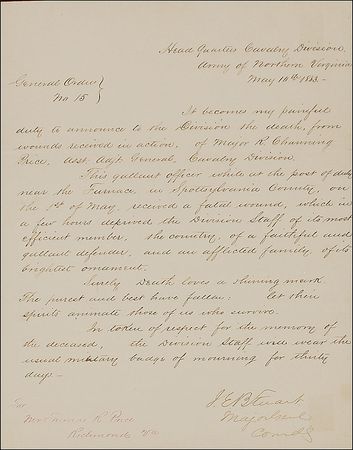 Head Quarters Cavalry Division
Army of Northern Virginia
May 14th 1863.-
General Orders
No 15
It becomes my painful
duty to announce to the Division the death, from
wounds received in action, of Major R. Channing
Price, Asst. Adjt General, Cavalry Division.
This gallant officer while at the post of duty
near the Furnace, in Spotsylvania County, on
the 1st of May, received a fatal wound, which in
a few hours deprived the Division Staff of its most
efficient member, the country, of a faithful and
gallant defender, and an afflicted family, of its
brightest ornament.
Surely Death loves a shining mark.
The purest and best have fallen; let their
spirits animate those of us who survive.
In token of respect for the memory of
the deceased, the Division Staff will wear the
usual military badge of mourning for thirty
days -
J. E. B Stuart
Major Genl
Comdg
For
Mrs Thomas R Price
Richmond Va